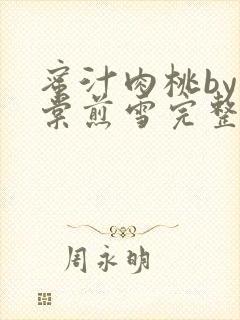 蜜汁肉桃by
棠煎雪完整
周永明